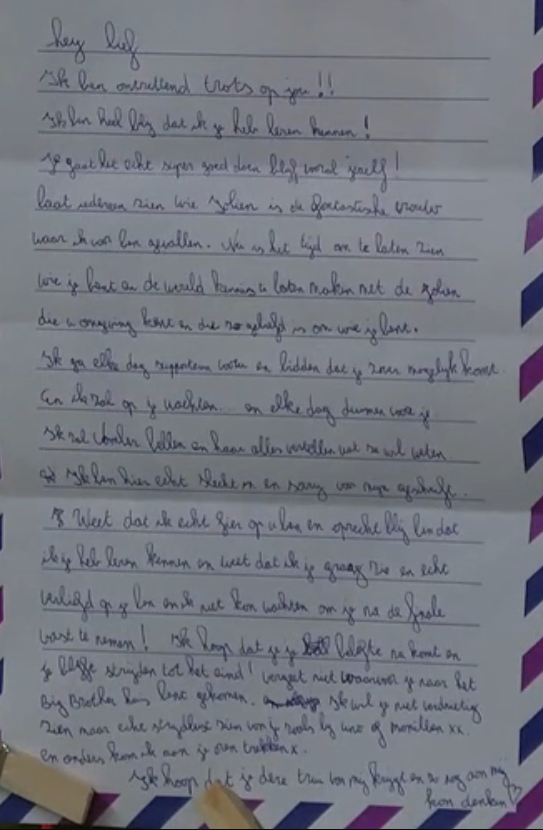 hey lief
Ik ben ontzettend trots op jou!!
Ik ben heel blij dat ik je heb leren kennen!
Je gaat het echt super goed doen blijf vooral jezelf!
laat iedereen zien wie Jolien is de fantastische vrouw
waar ik voor ben gevallen. Nu is het tijd om te laten zien
wie je bent en de wereld kennis te laten maken met de Jolien
die u omgeving kent en die zo geliefd is om wie je bent.
Ik ga elke dag supporteren voten en bidden dat je zover mogelijk komt.
En ik zal op je wachten... en elke dag duimen voor je
Ik zal bellen en haar alles vertellen wat ze wil weten.
Ik ben hier echt slecht in en sorry voor mijn geschrift.
Weet dat ik echt fier op u ben en oprecht blij ben dat
ik je heb leren kennen en weet dat ik je graag zie en echt
verliefd op je ben en ik niet kan wachten om je na de finale
vast te nemen! Ik hoop dat je je belofte na komt en
je blijft strijden tot het eind! vergeet niet waarvoor je naar het
Big Brother huis bent gekomen. Ik wil je niet verdrietig
zien maar echt strijdlust zien van je zoals bij uno of xx.
en anders kom ik aan je oren trekken x.
Ik hoop dat je deze trui van mij krijgt en zo nog aan mij
kan denken ♡